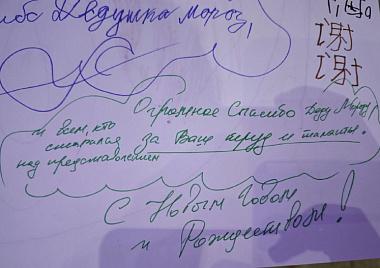 Дедушка Мороз,
谢
谢
Огромное Спасибо Деду Морозу
и всем, кто старался над представлением
за Ваш труд и таланты.
С Новым Годом
и Рождеством!